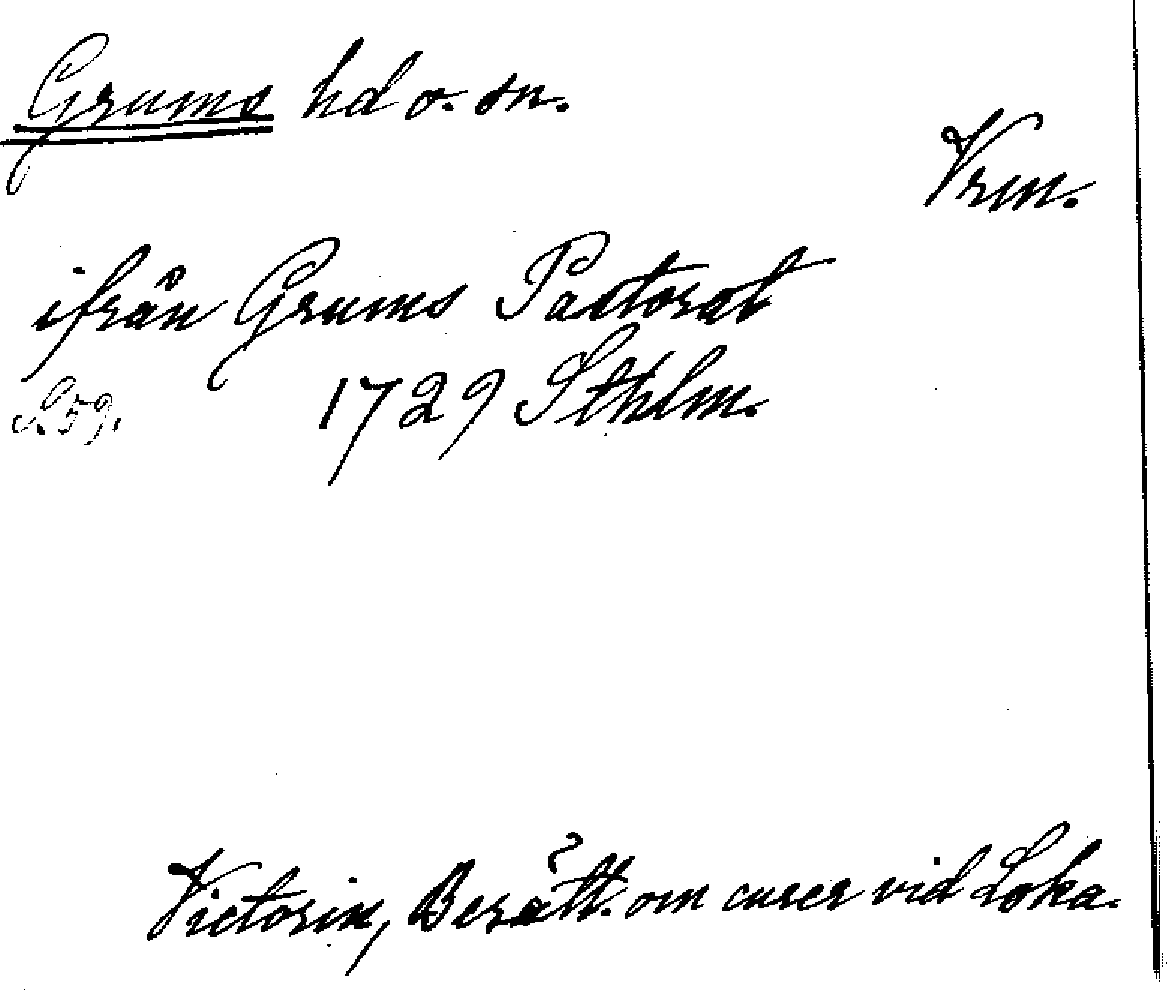 Grums hd o. sn.
Vrm.
ifrån Grums Pastorat
S. 59. 1729 Sthlm.
Victorin, Berätt. om curer vid Loka.